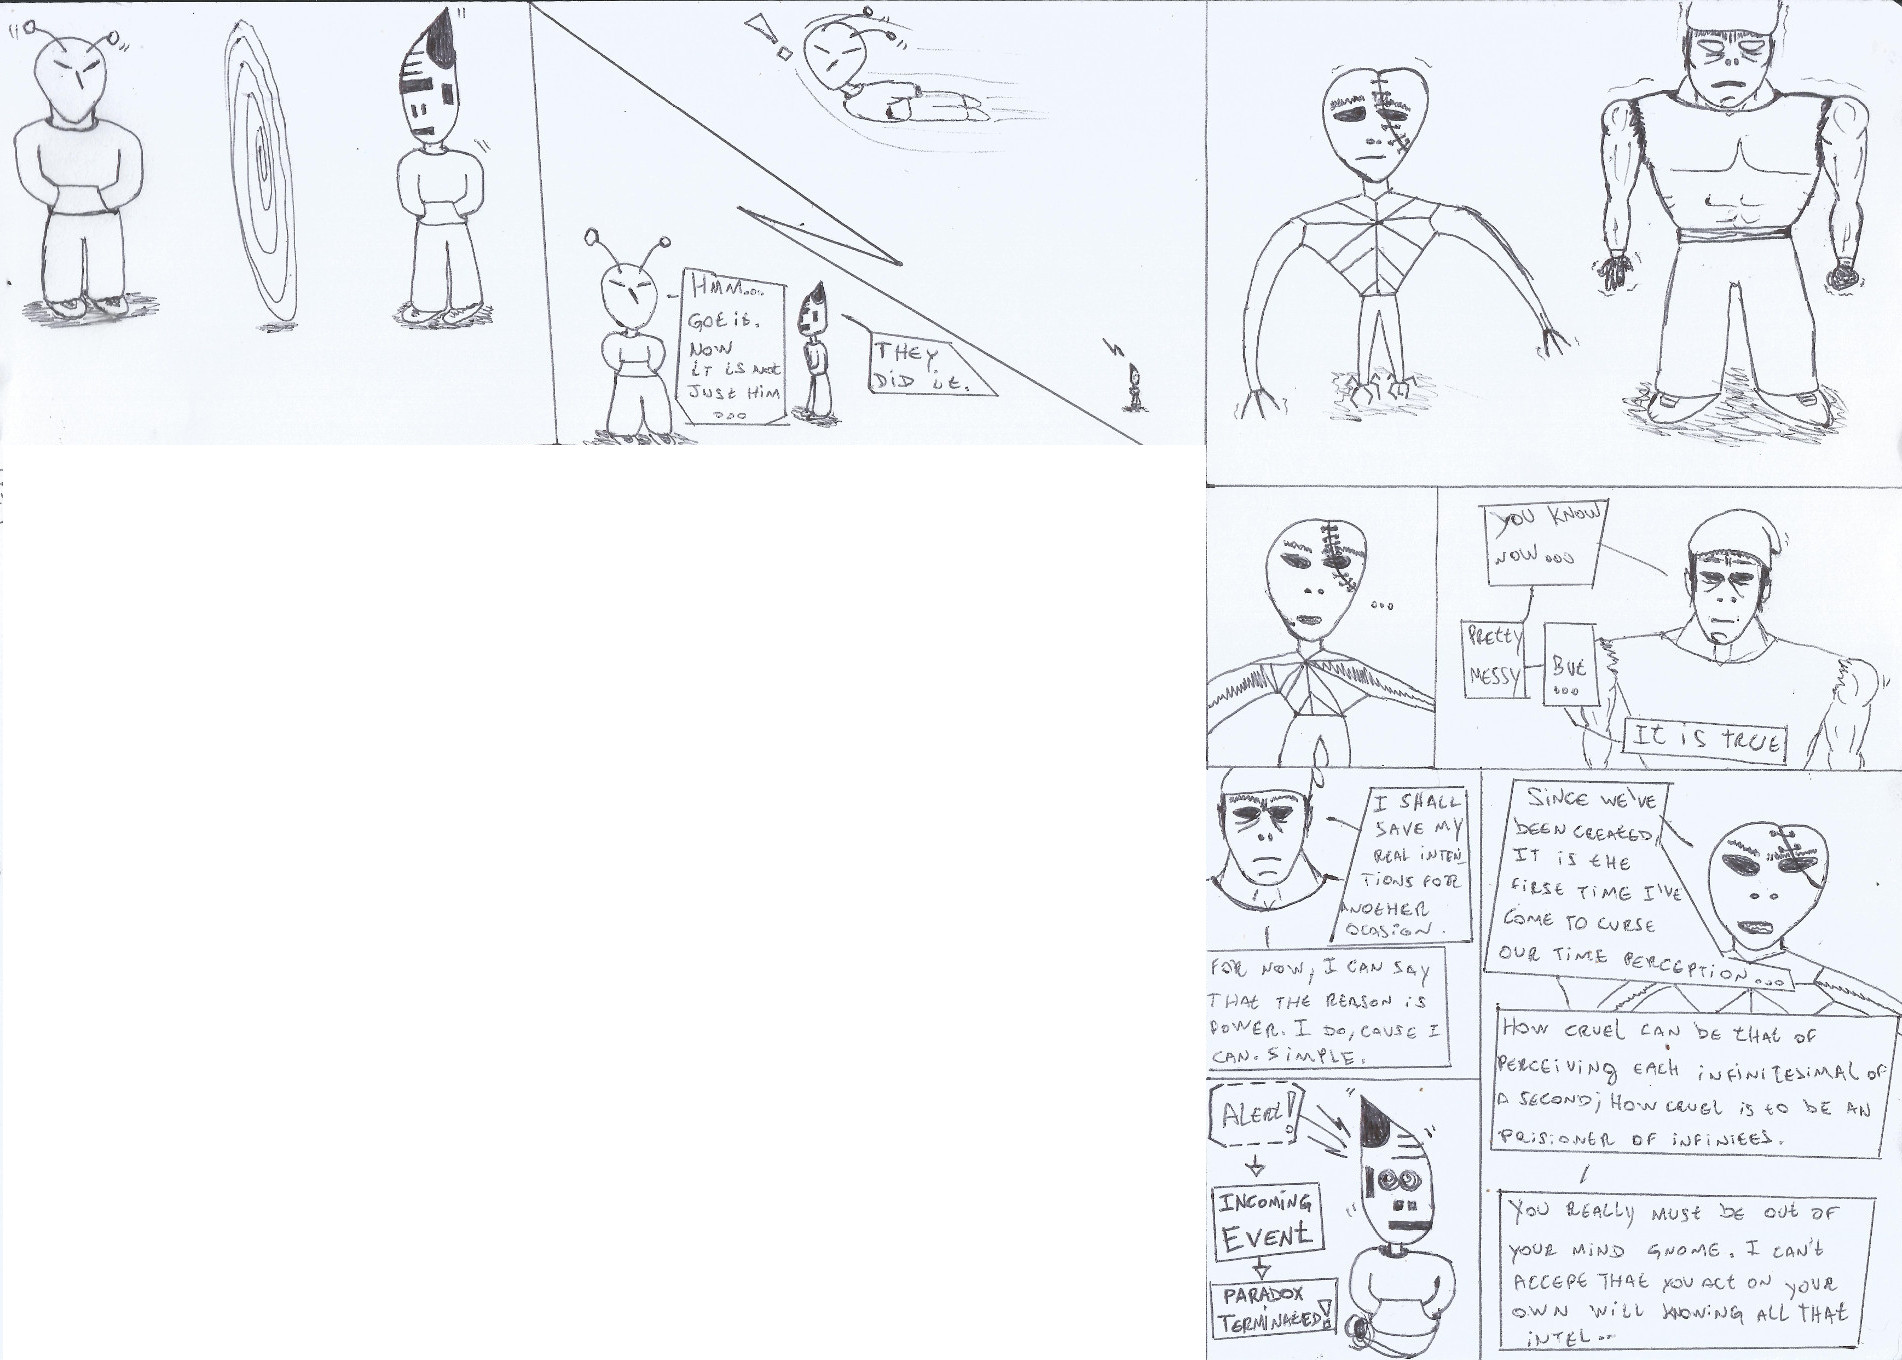 HMM...
GOT it.
NOW
iT iS NOT
JUST HIM
...
THEY
DiD it.
...
YOU KNOW
NOW...
PRETTY
MESSY
BUT
...
IT iS TRUE
I SHALL
SAVE MY
REAL INTEN_
TIONS FOR
ANOTHER
OCASION.
FOR NOW, I CAN SAY
THAT THE REASON iS
POWER. I DO, CAUSE I
CAN. SiMPLE.
SINCE WE'VE
BEEN CREATED,
IT iS THE
FiRST TIME I'VE
COME TO CURSE
OUR TIME PERCEPTION...
HOW CRUEL CAN BE THAT OF
PERCEIVING EACH INFINITESIMAL OF
A SECOND; HOW CRUEL iS TO BE AN
PRISIONER OF INFINITES.
YOU REALLY MUST BE OUT OF
YOUR MIND GNOME. I CAN'T
ACCEPT THAT YOU ACT ON YOUR
OWN WILL KNOWING ALL THAT
iNTEL...
ALERT!
INCOMING
EVENT
PARADOX
TERMINATED!